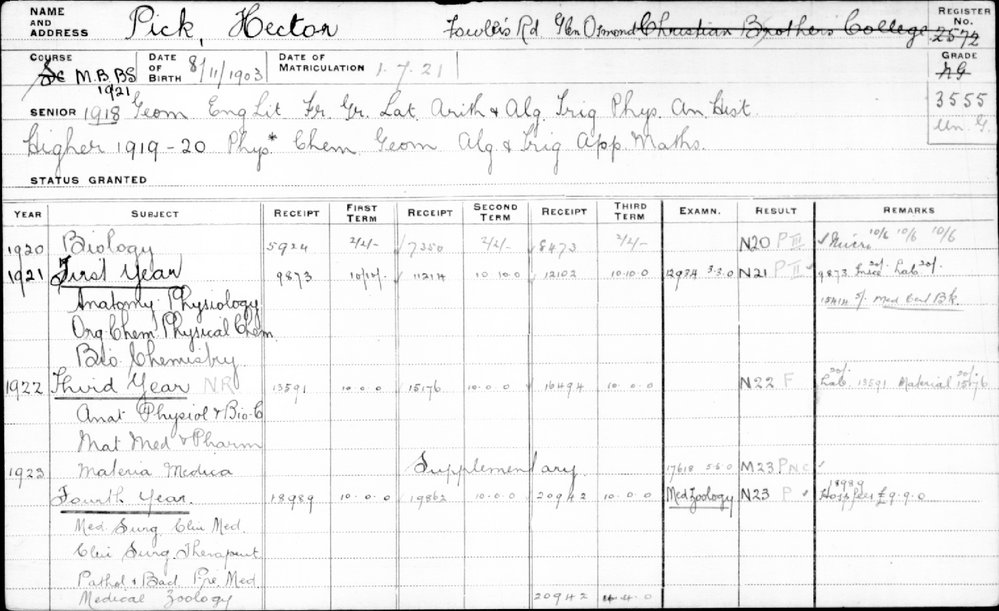 NAME AND ADDRESS Pick, Hector Fowler's Rd Glen Osmond Christian Brothers College REGISTER No. 2572
COURSE Sc M.B. B.S 1921 DATE OF BIRTH 8/11/1903 DATE OF MATRICULATION 1.7.21 GRADE
SENIOR 1918 Geom Eng Lit Fr. Gr. Lat. Arith & Alg Trig Phys. An. Hist. 3555
Higher 1919-20 Phys* Chem Geom Alg & Trig App. Maths. Un G.
STATUS GRANTED
YEAR SUBJECT RECEIPT FIRST TERM RECEIPT SECOND TERM RECEIPT THIRD TERM EXAMN. RESULT REMARKS
1920 Biology 5924 2/2/- 7350 2/2/- 8473 2/2/- N20 P III Micro 10/6 10/6 10/6
1921 First Year 9873 11214 10 10.0 12102 10.10.0 12934 3.3.0 N21 P II 9873 Lab 20/-
Anatomy Physiology 5/- Med Bk.
Org Chem Physical Chem
Bio. Chemistry
1922 Third Year NR 13591 10.0.0 15176 10.0.0 16494 10.0.0 N22 F Lab. 20/- 13591 Material 20/- 15176
Anat Physiol & Bio-C
Mat Med & Pharm
1923 Materia Medica Supplementary 17618 5.5.0 M23 P N C
Fourth Year 18989 10.0.0 19862 10.0.0 20942 10.0.0 Med Zoology N23 P 18989 Hosp fees £9.9.0
Med. Surg. Clin Med.
Clin Surg. Therapeut
Pathol & Bact Pre. Med.
Medical Zoology 20942 4.4.0